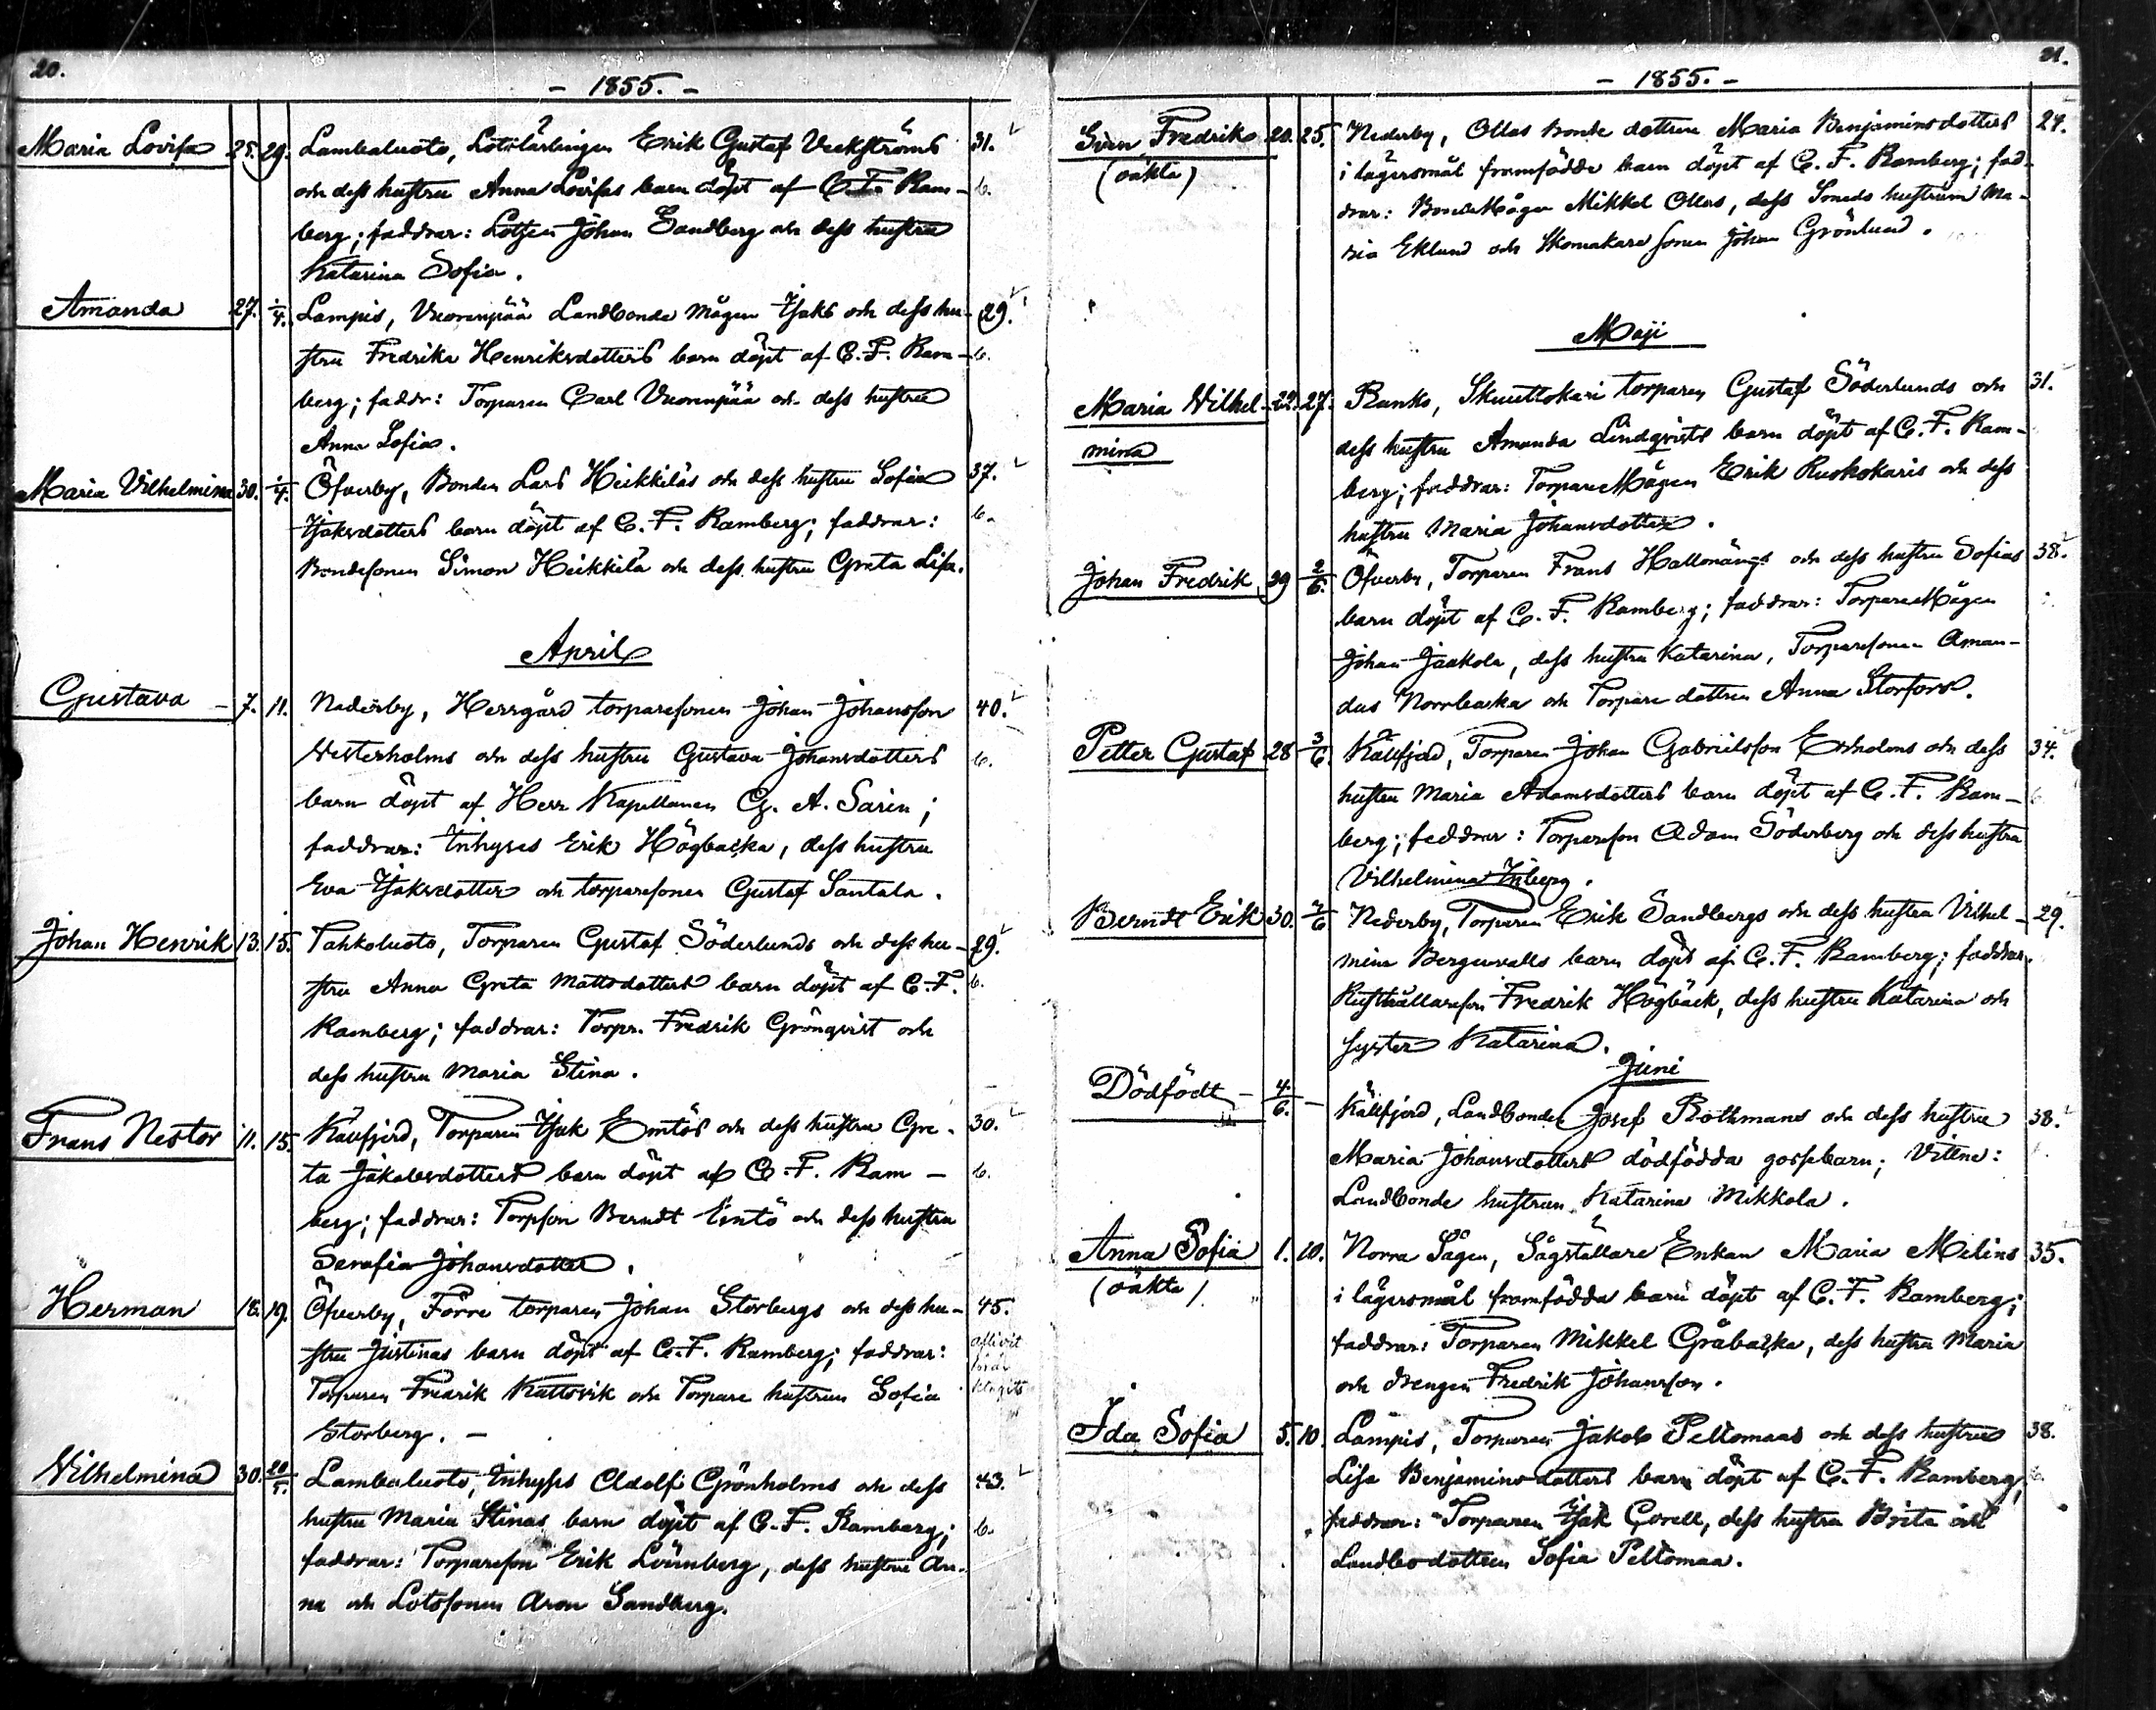 20.
- 1855. -
Maria Lovisa 25. 29. Lambaluoto, Lotslärlingen Erik Gustaf Veckströms 31.
och dess hustru Anna Lovisas barn döpt af C. F. Ram- b.
berg; faddrar: Lotsen Johan Sandberg och dess hustru
Katarina Sofia.
Amanda 27. 1/4. Lampis, Vuorenpää Landbonde mågen Isaks och dess hu- 29.
stru Fredrika Henriksdotters barn döpt af C. F. Ram- b.
berg; faddr: Torparen Carl Vuorenpää och dess hustru
Anna Sofia.
Maria Vilhelmina 30. 1/4. Öfverby, Bonden Lars Heikkiläs och dess hustru Sofia 37.
Isaksdotters barn döpt af C. F. Ramberg; faddrar: b.
Bondesonen Simon Heikkilä och dess hustru Greta Lisa.
April
Gustava - 7. 11. Nederby, Herrgård torparesonen Johan Johansson 40.
Westerholms och dess hustru Gustava Johansdotters b.
barn döpt af Herr Kapellanen G. A. Sarin;
faddrar: Inhyses Erik Högbacka, dess hustru
Eva Isaksdotter och torparesonen Gustaf Santala.
Johan Henrik 13. 15. Tahkoluoto, Torparen Gustaf Söderlunds och dess hu- 29.
stru Anna Greta Mattsdotters barn döpt af C. F. b.
Ramberg; faddrar: Torpr. Fredrik Grönqvist och
dess hustru Maria Stina.
Frans Nestor 11. 15. Källfjerd, Torparen Isak Emtös och dess hustru Gre- 30.
ta Jakobsdotters barn döpt af C. F. Ram- b.
berg; faddrar: Torpson Berndt Emtö och dess hustru
Serafia Johansdotter.
Herman 18. 19. Öfverby, Förre torparen Johan Storbergs och dess hu- 45.
stru Justinas barn döpt af C. F. Ramberg; faddrar:
Torparen Fredrik Kattsvik och Torpare hustrun Sofia
Storberg. -
Vilhelmina 30. 20/5. Lambaluoto, Inhyses Adolf Grönholms och dess 43.
hustru Maria Stinas barn döpt af C. F. Ramberg; b.
faddrar: Torpareson Erik Lönnberg, dess hustru An-
na och Lotssonen Aron Sandberg.
21.
- 1855. -
Sven Fredrik 20. 25. Nederby, Ollas Bonde dottren Maria Benjaminsdotters 24.
(oäkta) i lägersmål framfödde barn döpt af C. F. Ramberg; fad-
drar: BondeMågen Mikkel Ollas, dess Soneds hustrum Ma-
ria Eklund och Skomakare sonen Johan Grönlund.
Maji
Maria Wilhel- 22. 27. Ranko, Skuuttokari torparen Gustaf Söderlunds och 31.
mina dess hustru Amanda Lindqvists barn döpt af C. F. Ram-
berg; faddrar: TorpareMågen Erik Ruokokaris och dess
hustru Maria Johansdotter.
Johan Fredrik 29 2/6. Öfverby, Torparen Frans Hallonängs och dess hustru Sofias 38.
barn döpt af C. F. Ramberg; faddrar: TorpareMågen
Johan Jaakola, dess hustru Katarina, Torparesonen Aman-
dus Norrbacka och Torpare dottren Anna Storfors.
Petter Gustaf 28 3/6 Källfjerd, Torparen Johan Gabrielsson Ekholms och dess 34.
hustru Maria Adamsdotters barn döpt af C. F. Ram-
berg; faddrar: Torpareson Adam Söderberg och dess hustru
Vilhelmina Inberg.
Berndt Erik 30. 7/6 Nederby, Torparen Erik Sandbergs och dess hustru Vilhel- 29.
mina Bergenvalls barn döpt af C. F. Ramberg; faddrar.
Rusthållareson Fredrik Högbäck, dess hustru Katarina och
syster Katarina.
Juni
Dödfödt - 4/6. - Källfjerd, Landbonden Josef Rothmans och dess hustru 38.
Maria Johansdotters dödfödda gossebarn; Vittne:
Landbonde hustrun Katarina Mikkola.
Anna Sofia 1. 10. Norra Sågen, Sågställare Enkan Maria Melins 35.
(oäkta) i lägersmål framfödda barn döpt af C. F. Ramberg;
faddrar: Torparen Mikkel Gråbacka, dess hustru Maria
och drengen Fredrik Johansson.
Ida Sofia 5. 10. Lampis, Torparen Jakob Peltomaas och dess hustru 38.
Lisa Benjaminsdotters barn döpt af C. F. Ramberg,
faddrar: Torparen Isak Corell, dess hustru Brita och
Landbodottren Sofia Peltomaa.